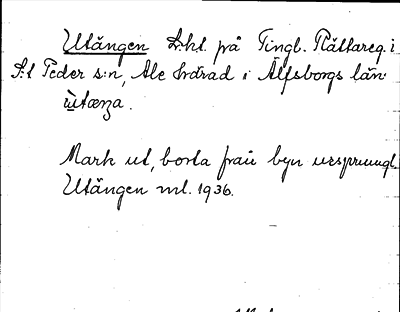 Utängen L.ht på Tingl. Rättareg. i
S:t Peder s:n, Ale härad i Älfsborgs län
ùtæŋa.
Mark ut, borta från byn ursprungl.
Utängen ml. 1936.